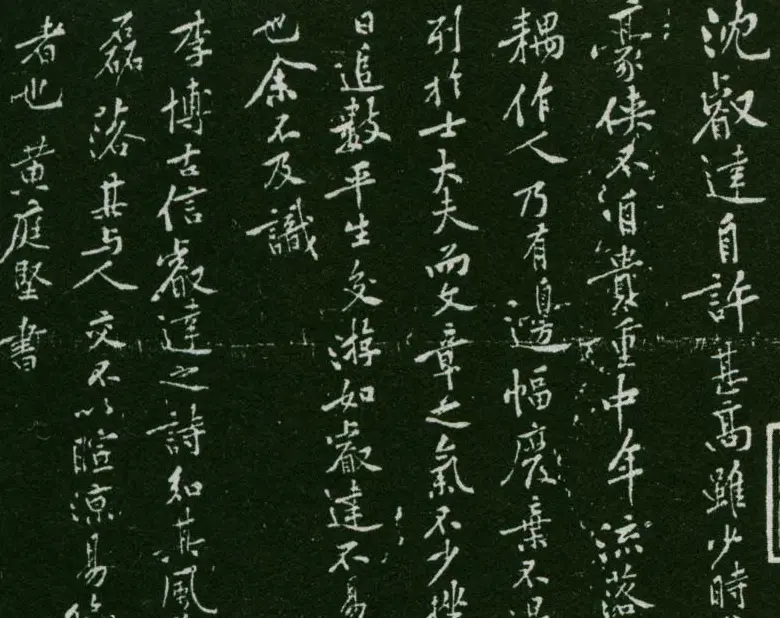 沈叡達自許甚高雖少時
豪俠不自貴重中年流落
耦作人乃有邊幅廢棄不得
列於士大夫而文章之氣不少挫
日追數平生交游如叡達不易
也余不及識
李博古信叡達之詩知其風
磊落其与人交不以暄涼易
者也黄庭堅書